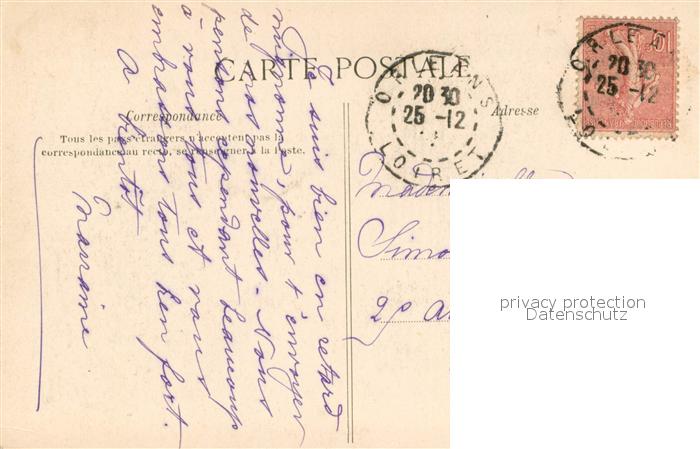 CARTE POSTALE
Correspondance
Adresse
Tous les pays étrangers n'acceptent pas la
correspondance au recto, se renseigner à la Poste.
Je suis bien en retard
mignonne, pour t'envoyer
de nos nouvelles. Nous
pensons cependant beaucoup
à vous tous et vous
embrassons tous bien fort.
A bientôt
Marraine
ORLEANS
20 30
25 -12
LOIRET
ORLEA
20 30
25 -12
10
Simo
privacy protection
Datenschutz